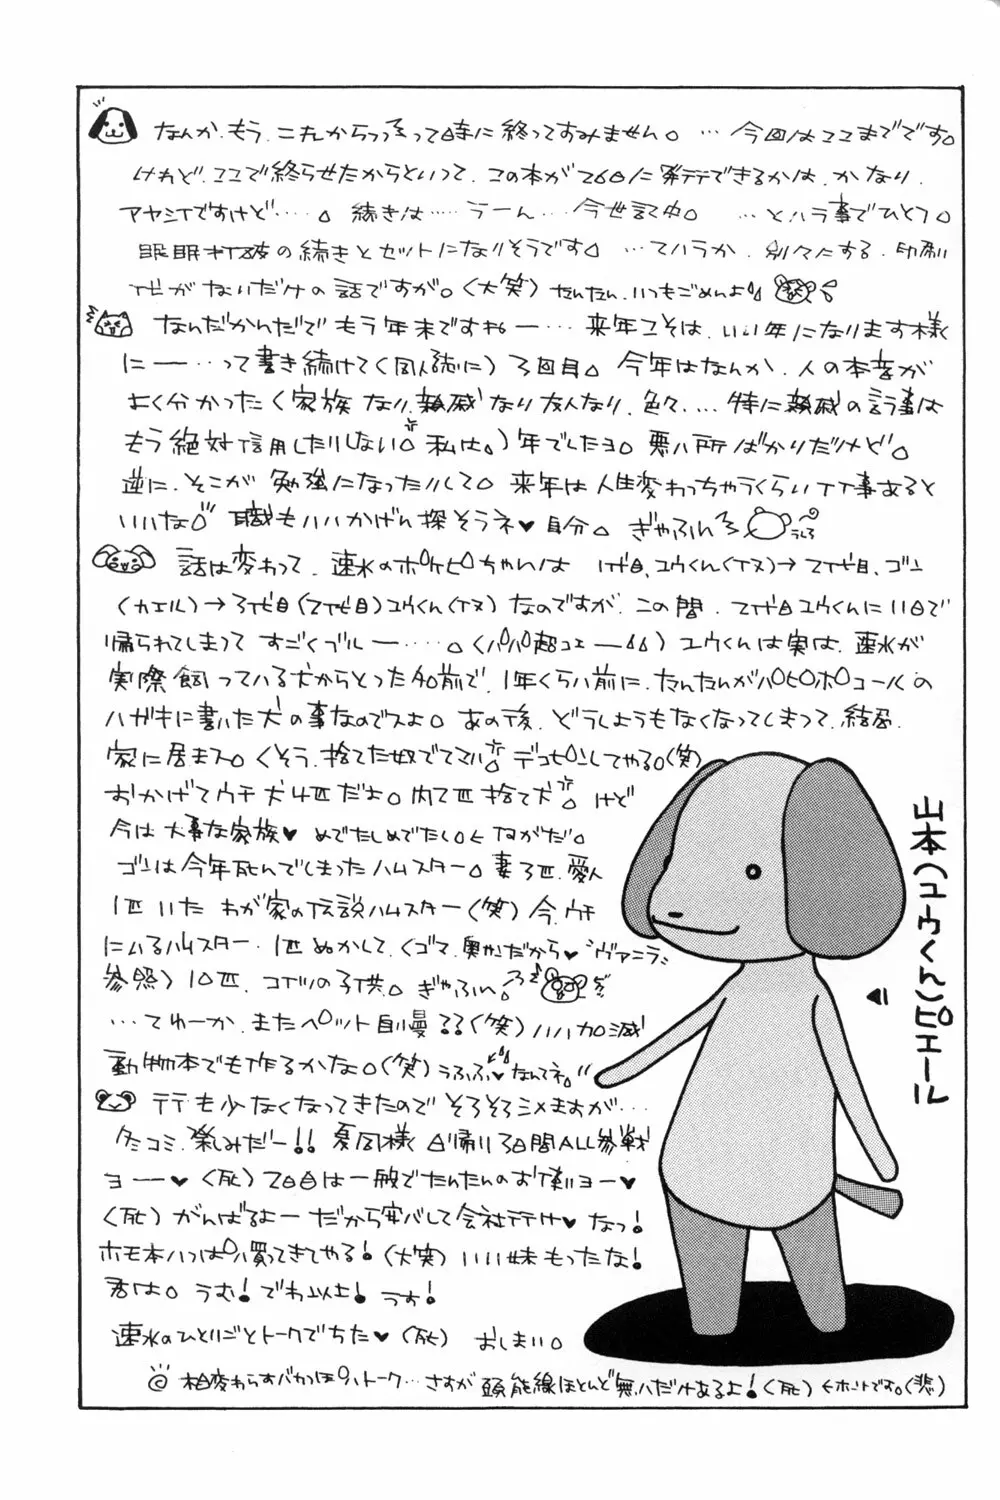 なんか、もう、これからっって時に終ってすみません。…今回はここまでです。
けれど、ここで終らせたからといって、この本が26日に発行できるかは、かなり、
アヤシイですけど……。続きは……うーん…今世記中。…とハラ事でひとつ。
眠眠打破の続きとセットになりそうです。…てハラか、別々にする、印刷
代がないだけの話ですが。(大笑)たんたん、いつもごめんよ
なんだかんだでもう年末ですねー…来年こそは、いい年になります様
にー…って書き続けて(同人誌に)3回目。今年はなんか、人の本音が
よく分かった(家族なり、親戚なり友人なり、色々…特に親戚の言う事は
もう絶対信用したりしない。私は。)年でしたヨ。悪い所ばかりだけど。
逆に、そこが勉強になったりして。来年は人生変わっちゃうくらいイイ事あると
いいな。職もいいかげん探そうネ♥自分。ぎゃふん
話は変わって、速水のポケピちゃんは 1代目、ユウくん(イヌ)→2代目、ゴン
(カエル)→3代目(2代目)ユウくん(イヌ)なのですが、この間、2代目ユウくんに11日で
帰られてしまってすごくブルー……。(パパ超コエー)ユウくんは実は、速水が
実際飼っている犬からとった名前で、1年くらい前に、たんたんがパピポコールの
ハガキに書いた犬の事なのでスよ。あの後、どうしようもなくなってしまって、結局、
家に居まス。(くそう、捨てた奴でてこい。デコピンしてやる。(笑)
おかげでウチ犬4匹だよ。内2匹捨て犬。けど
今は大事な家族♥めでたしめでたし。←ながだ。
ゴンは今年死んでしまったハムスター。妻3匹、愛人
1匹いたわが家の伝説ハムスター(笑)今、ウチ
にいるハムスター、1匹ぬかして、(ゴマ、奥かだから♥"ヴァニラ"
参照)10匹、コイツの子供。ぎゃふん。
…てゆーか、またペット自慢??(笑)いい加減
動物本でも作るかな。(笑)うふふ♥なんてネ。
行も少なくなってきたのでそろそろシメますが…
冬コミ、楽しみだー!!夏同様日帰り3日間ALL参戦
ヨー♥(死)2日目は一般でたんたんのお使いヨー♥
(死)がんばるよーだから安心して会社行け♥なっ!
ホモ本いっぱい買ってきてやる!(大笑)いい妹もったな!
君は。うむ!でわ以上!うす!
速水のひとりごとトークでちた♥(死) おしまい。
◎相変わらずバカっぽいトーク…さすが頭脳線ほとんど無いだけあるよ!(死)←ホントです。(悲)
山本(ユウくん)ピエール